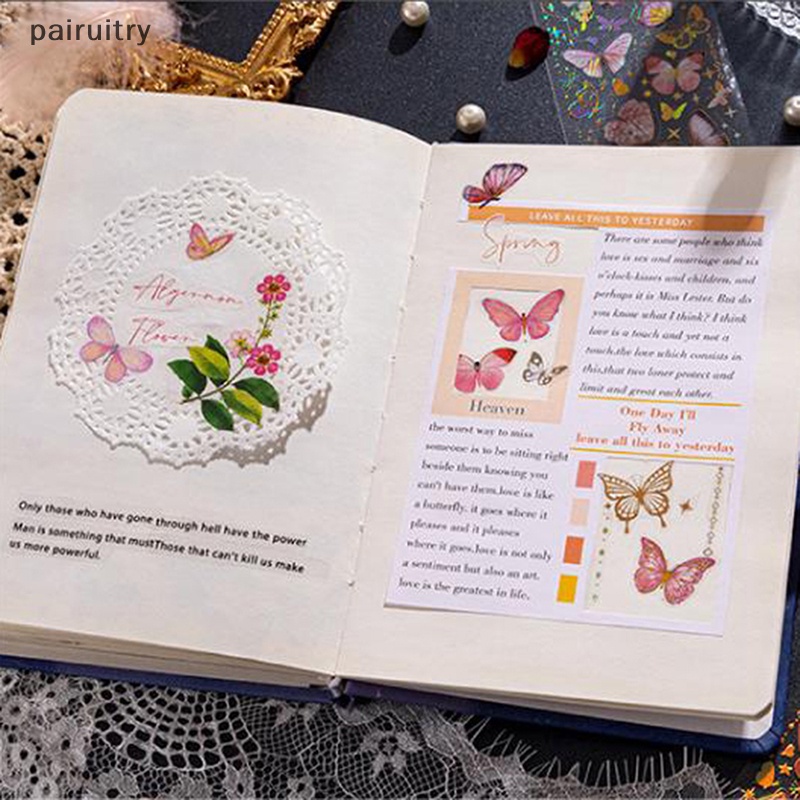 pairuitry
Algernon
Flower
Only those who have gone through hell have the power
Man is something that mustThose that can't kill us make
us more powerful.
LEAVE ALL THIS TO YESTERDAY
Spring
There are some people who think
love is sex and marriage and six
o'clock-kisses and children, and
perhaps it is Miss Lester. But do
you know what I think? I think
love is a touch and yet not a
touch.the love which consists in
this,that two loner protect and
limit and great each other.
Heaven
the worst way to miss
someone is to be sitting right
beside them knowing you
can't have them.love is like
a butterfly. it goes where it
pleases and it pleases
where it goes.love is not only
a sentiment but also an art.
love is the greatest in life.
One Day I'll
Fly Away
leave all this to yesterday